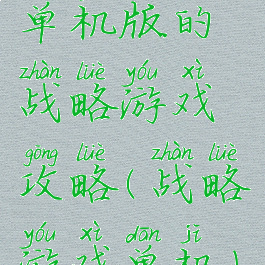 单机版的
zhàn lüè yóu xì
战略游戏
gōng lüè zhàn lüè
攻略(战略
yóu xì dān jī
游戏单机)